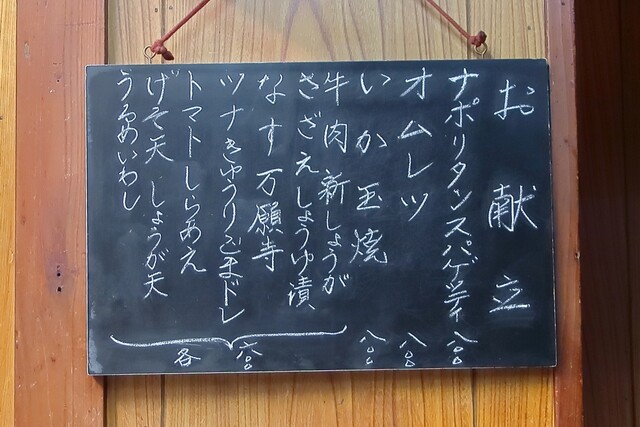 お献立
ナポリタンスパゲッティ 八〇〇
オムレツ 八〇〇
いか玉焼 八〇〇
牛肉新しょうが
さざえしょうゆ漬
なす万願寺
ツナきゅうりごまドレ
トマトしらあえ
げそ天 しょうが天
うるめいわし
各 六〇〇